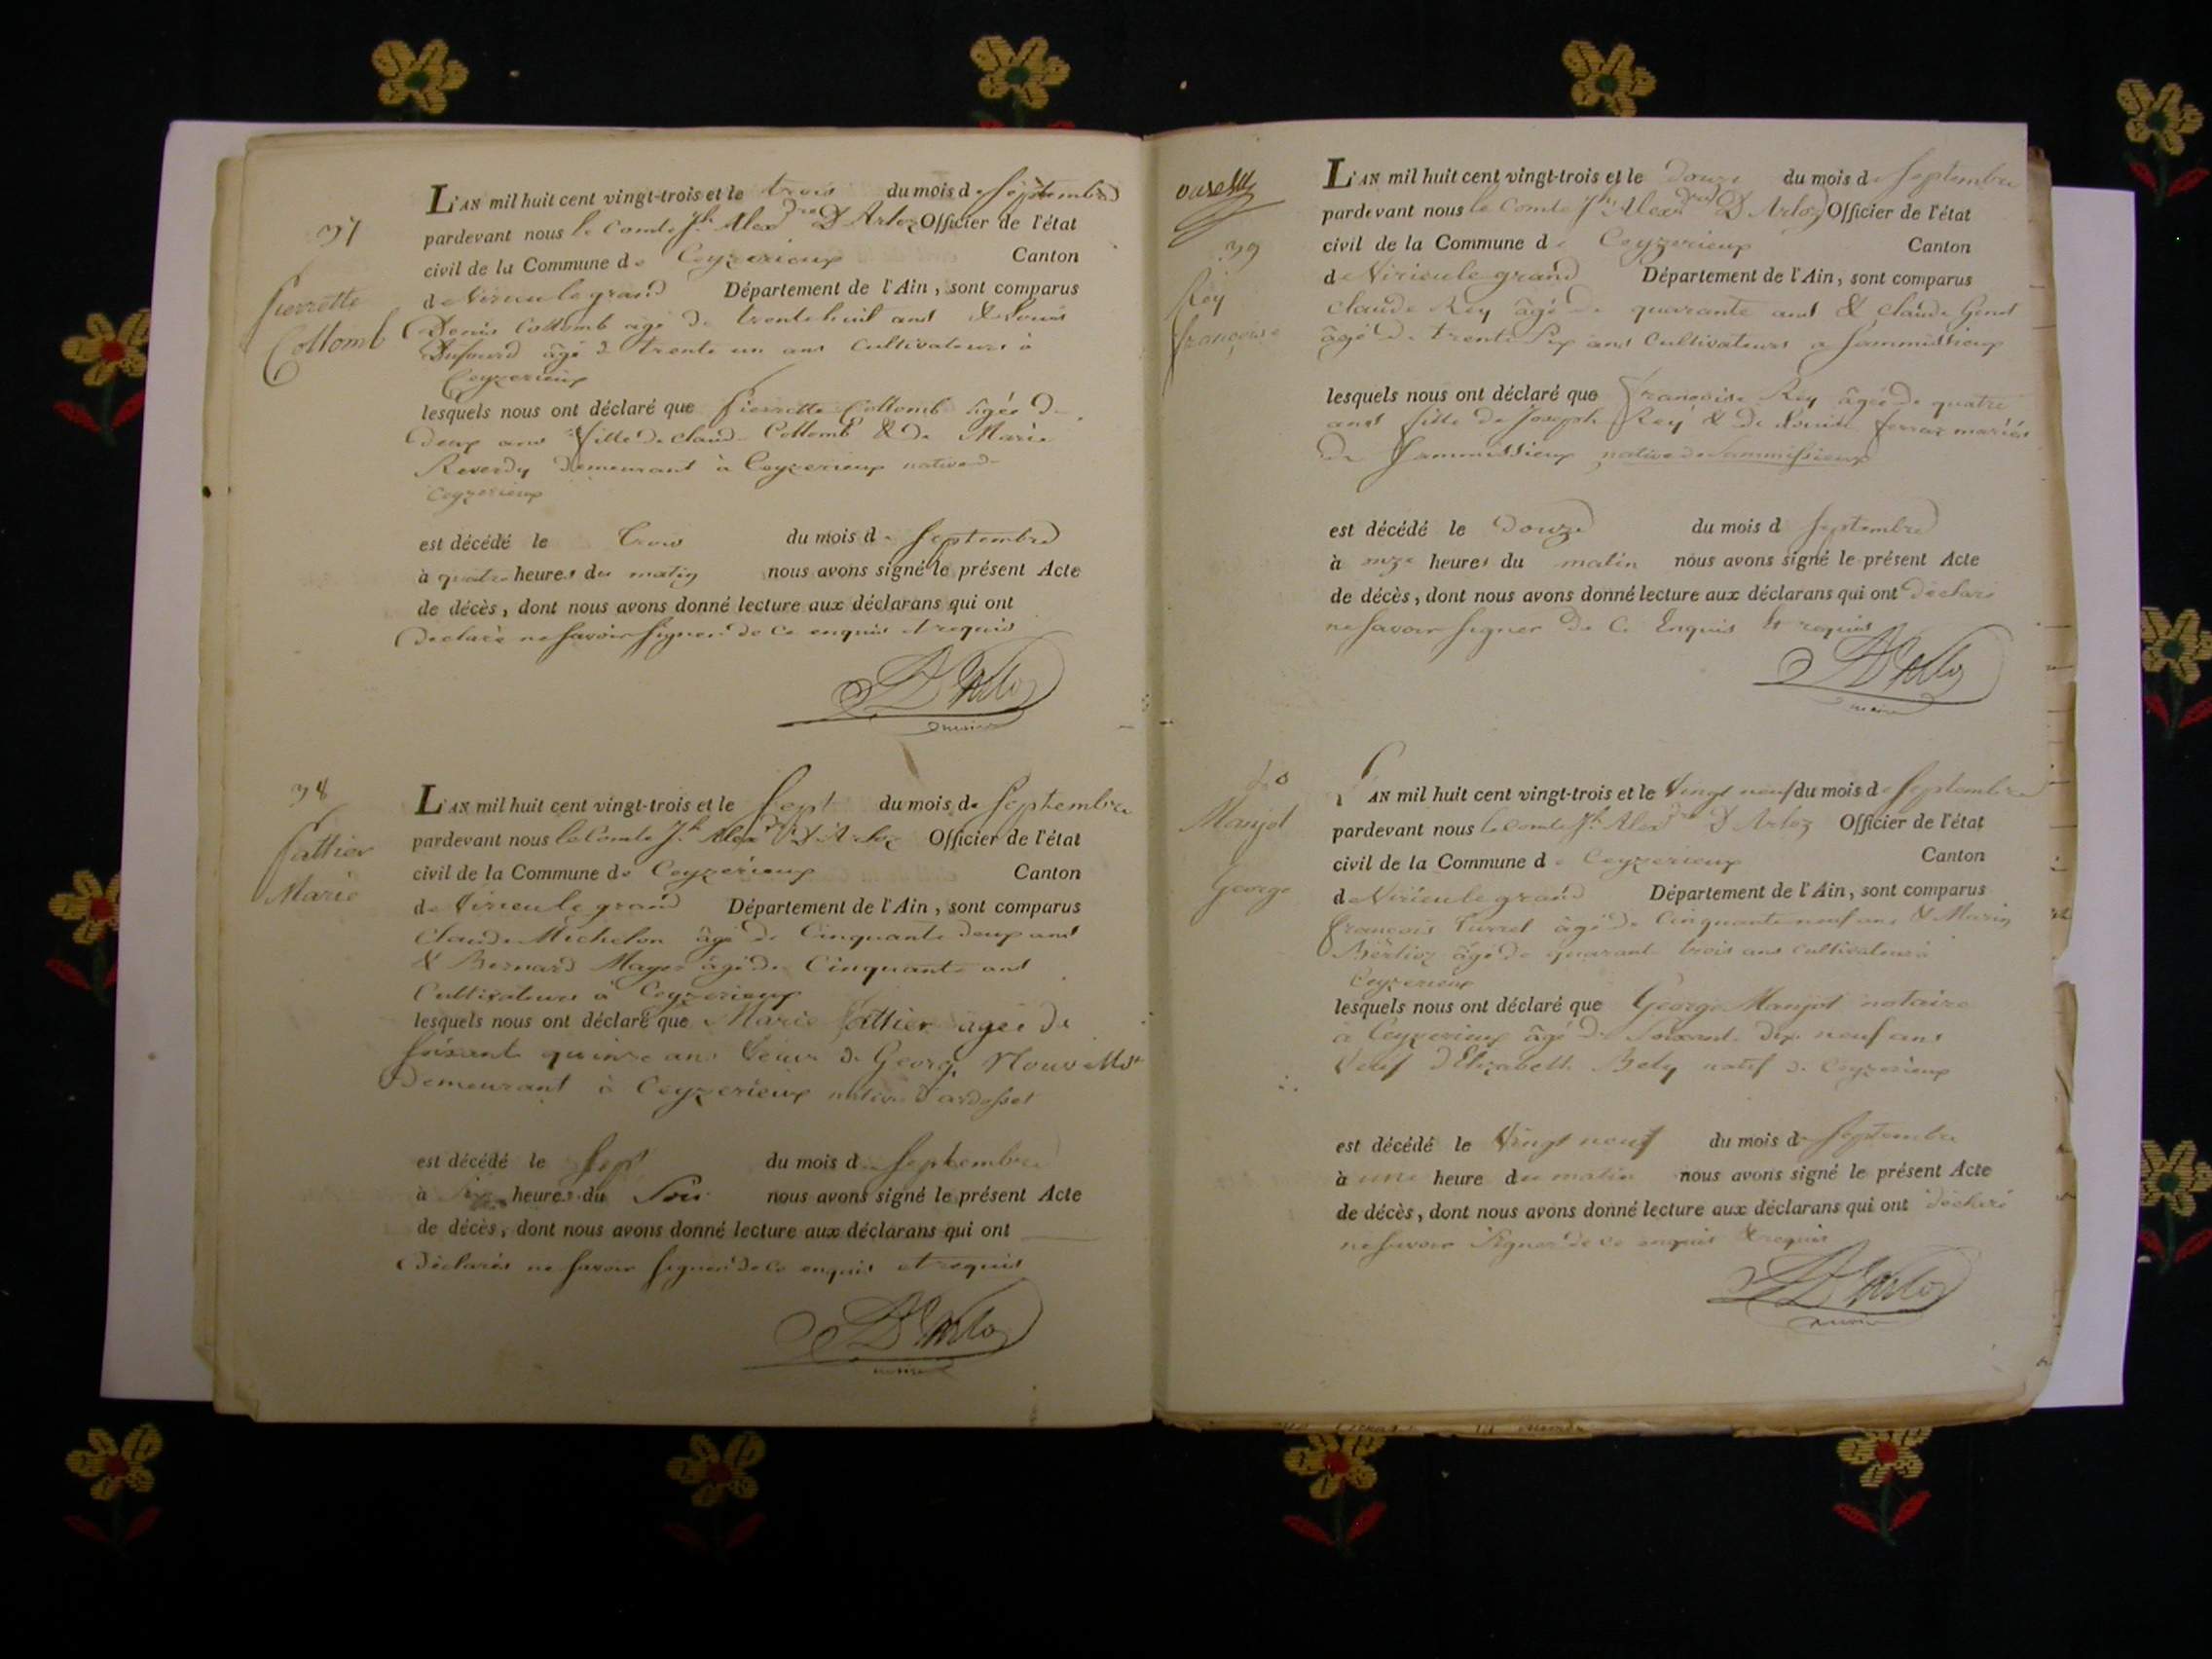 37
Pierrette
Collomb
L'AN mil huit cent vingt-trois et le trois du mois de Septembre
pardevant nous le Comte Jh. Alexdre D'Arloz Officier de l'état
civil de la Commune de Ceyzerieux Canton
de Virieu le grand Département de l'Ain, sont comparus
Denis Collomb agé de trente huit ans & Louis
âgé de trente un ans Cultivateurs à
Ceyzerieux
lesquels nous ont déclaré que Pierrette Collomb agée de
deux ans fille de claude Collomb & de Marie
Reverdy demeurant à Ceyzerieux native de
Ceyzerieux
est décédé le trois du mois de Septembre
à quatre heures du matin nous avons signé le présent Acte
de décès, dont nous avons donné lecture aux déclarans qui ont
declarés ne savoir signer de ce enquis et requis
D'Arloz
maire
38
Pattier
Marie
L'AN mil huit cent vingt-trois et le Sept du mois de Septembre
pardevant nous le Comte Jh. Alexdre D'Arloz Officier de l'état
civil de la Commune de Ceyzerieux Canton
de Virieu le grand Département de l'Ain, sont comparus
Claude Michelon âgé de Cinquante deux ans
& Bernard âgé de Cinquante ans
Cultivateurs à Ceyzerieux
lesquels nous ont déclaré que Marie Pattier agée de
soixante quinze ans veuve de George
demeurant à Ceyzerieux native d'ardosset
est décédé le Sept du mois de Septembre
à six heures du Soir nous avons signé le présent Acte
de décès, dont nous avons donné lecture aux déclarans qui ont
déclarés ne savoir signer de ce enquis et requis
D'Arloz
maire
39
Rey
françoise
L'AN mil huit cent vingt-trois et le douze du mois de Septembre
pardevant nous le Comte Jh. Alexdre D'Arloz Officier de l'état
civil de la Commune de Ceyzerieux Canton
de Virieu le grand Département de l'Ain, sont comparus
Claude Rey âgé de quarante ans & claude
âgé de trente Six ans Cultivateurs a Sammissieux
lesquels nous ont déclaré que françoise Rey âgée de quatre
ans fille de Joseph Rey & de Louise ferraz mariés
de Sammissieux native de Sammissieux
est décédé le douze du mois d Septembre
à onze heures du matin nous avons signé le présent Acte
de décès, dont nous avons donné lecture aux déclarans qui ont déclaré
ne savoir signer de ce Enquis & requis
D'Arloz
maire
40
Manjot
George
L'AN mil huit cent vingt-trois et le Vingt neuf du mois de Septembre
pardevant nous le comte Jh. Alexdre D'Arloz Officier de l'état
civil de la Commune de Ceyzerieux Canton
de Virieu le grand Département de l'Ain, sont comparus
françois âgé de Cinquante neuf ans & Marin
Berlioz âgé de quarante trois ans cultivateurs à
Ceyzerieux
lesquels nous ont déclaré que George Manjot notaire
à Ceyzerieux âgé de Soixante dix neuf ans
Veuf d'Elizabeth Bely natif de Ceyzerieux
est décédé le Vingt neuf du mois de Septembre
à une heure du matin nous avons signé le présent Acte
de décès, dont nous avons donné lecture aux déclarans qui ont déclaré
ne savoir signer de ce enquis & requis
D'Arloz
maire